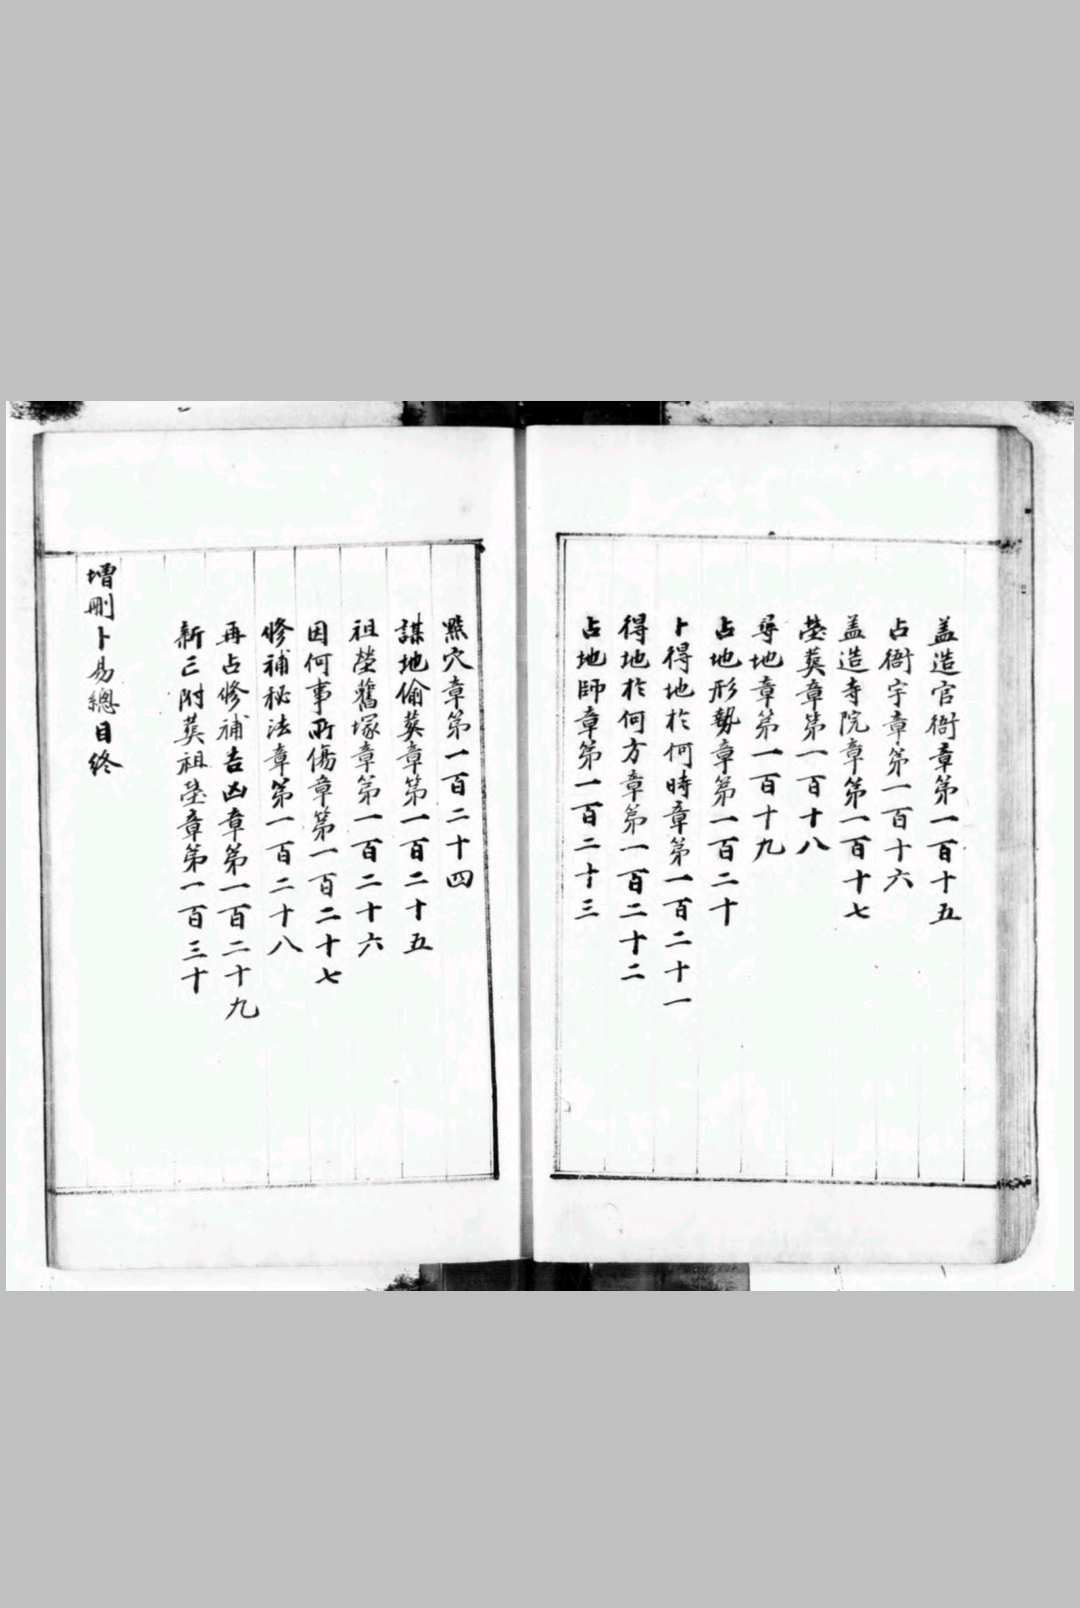 盖造官衙章第一百十五
占衙宇章第一百十六
盖造寺院章第一百十七
塋葬章第一百十八
尋地章第一百十九
占地形勢章第一百二十
卜得地於何時章第一百二十一
得地於何方章第一百二十二
占地師章第一百二十三
點穴章第一百二十四
謀地偷葬章第一百二十五
祖塋舊塚章第一百二十六
因何事所傷章第一百二十七
修補秘法章第一百二十八
再占修補吉凶章第一百二十九
新亡附葬祖塋章第一百三十
增刪卜易總目終